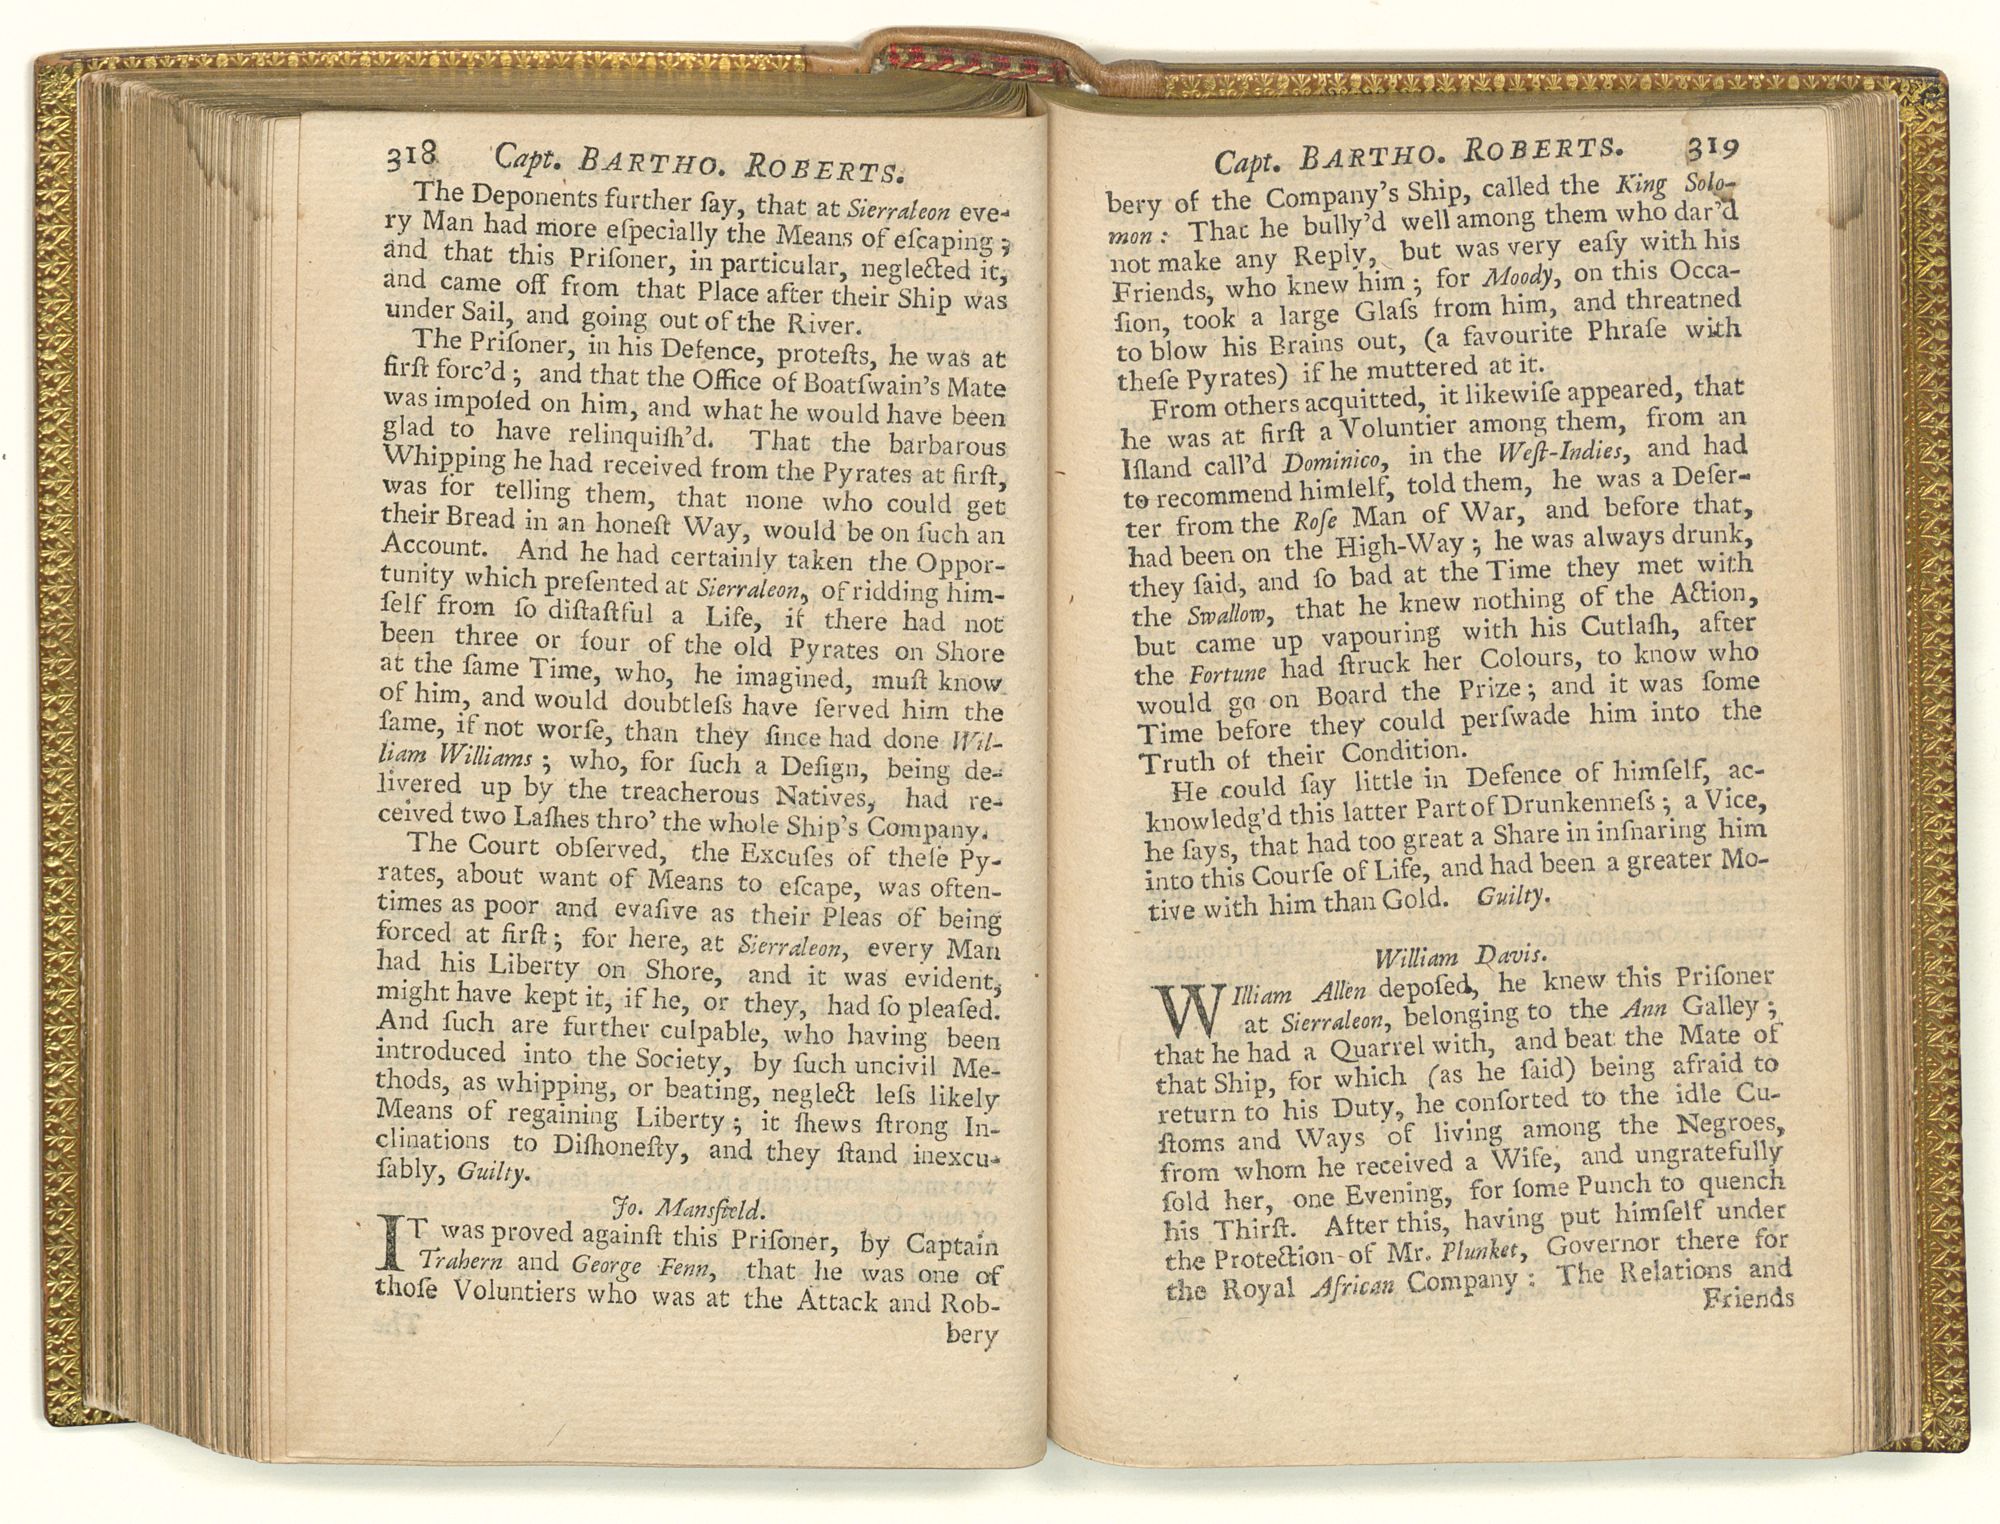 318 Capt. BARTHO. ROBERTS.
The Deponents further ſay, that at Sierraleon eve-
ry Man had more eſpecially the Means of eſcaping;
and that this Priſoner, in particular, neglected it,
and came off from that Place after their Ship was
under Sail, and going out of the River.
The Priſoner, in his Defence, proteſts, he was at
firſt forc'd; and that the Office of Boatſwain's Mate
was impoſed on him, and what he would have been
glad to have relinquiſh'd. That the barbarous
Whipping he had received from the Pyrates at firſt,
was for telling them, that none who could get
their Bread in an honeſt Way, would be on ſuch an
Account. And he had certainly taken the Oppor-
tunity which preſented at Sierraleon, of ridding him-
ſelf from ſo diſtaſtful a Life, if there had not
been three or four of the old Pyrates on Shore
at the ſame Time, who, he imagined, muſt know
of him, and would doubtleſs have ſerved him the
ſame, if not worſe, than they ſince had done Wil-
liam Williams; who, for ſuch a Deſign, being de-
livered up by the treacherous Natives, had re-
ceived two Laſhes thro' the whole Ship's Company.
The Court obſerved, the Excuſes of theſe Py-
rates, about want of Means to eſcape, was often-
times as poor and evaſive as their Pleas of being
forced at firſt; for here, at Sierraleon, every Man
had his Liberty on Shore, and it was evident,
might have kept it, if he, or they, had ſo pleaſed.
And ſuch are further culpable, who having been
introduced into the Society, by ſuch uncivil Me-
thods, as whipping, or beating, neglect leſs likely
Means of regaining Liberty; it ſhews ſtrong In-
clinations to Diſhoneſty, and they ſtand inexcu-
ſably, Guilty.
Jo. Mansfield.
IT was proved againſt this Priſoner, by Captain
Trahern and George Fenn, that he was one of
thoſe Voluntiers who was at the Attack and Rob-
bery
Capt. BARTHO. ROBERTS. 319
bery of the Company's Ship, called the King Solo-
mon: That he bully'd well among them who dar'd
not make any Reply, but was very eaſy with his
Friends, who knew him; for Moody, on this Occa-
ſion, took a large Glaſs from him, and threatned
to blow his Brains out, (a favourite Phraſe with
theſe Pyrates) if he muttered at it.
From others acquitted, it likewiſe appeared, that
he was at firſt a Voluntier among them, from an
Iſland call'd Dominico, in the Weſt-Indies, and had
to recommend himſelf, told them, he was a Deſer-
ter from the Roſe Man of War, and before that,
had been on the High-Way; he was always drunk,
they ſaid, and ſo bad at the Time they met with
the Swallow, that he knew nothing of the Action,
but came up vapouring with his Cutlaſh, after
the Fortune had ſtruck her Colours, to know who
would go on Board the Prize; and it was ſome
Time before they could perſwade him into the
Truth of their Condition.
He could ſay little in Defence of himſelf, ac-
knowledg'd this latter Part of Drunkenneſs; a Vice,
he ſays, that had too great a Share in inſnaring him
into this Courſe of Life, and had been a greater Mo-
tive with him than Gold. Guilty.
William Davis.
WIlliam Allen depoſed, he knew this Priſoner
at Sierraleon, belonging to the Ann Galley;
that he had a Quarrel with, and beat the Mate of
that Ship, for which (as he ſaid) being afraid to
return to his Duty, he conſorted to the idle Cu-
ſtoms and Ways of living among the Negroes,
from whom he received a Wife, and ungratefully
ſold her, one Evening, for ſome Punch to quench
his Thirſt. After this, having put himſelf under
the Protection of Mr. Plunket, Governor there for
the Royal African Company: The Relations and
Friends